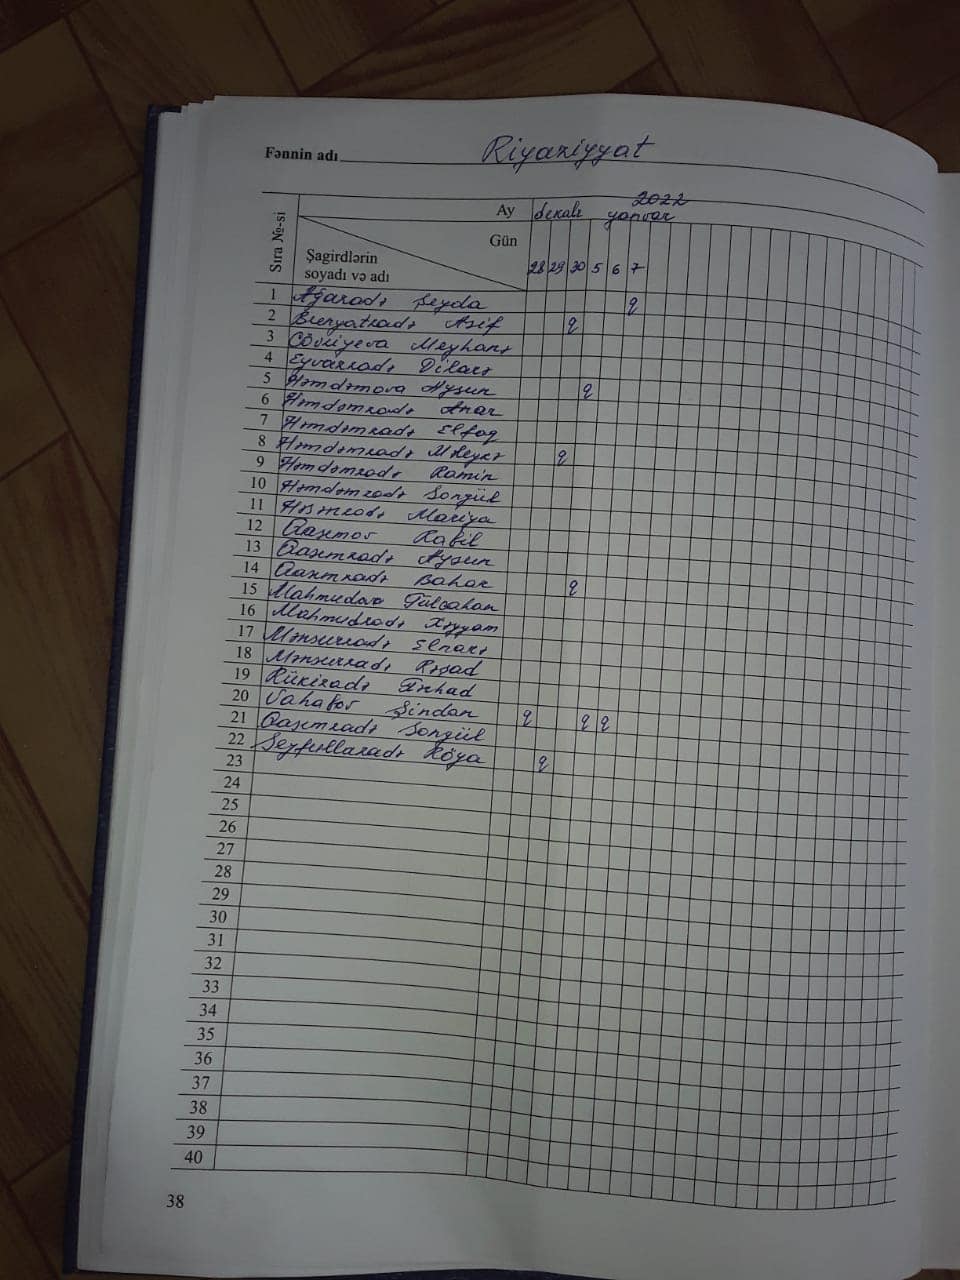 Fənnin adı Riyaziyyat
Sıra №-si
Ay dekabr 2022 yanvar
Gün
Şagirdlərin
soyadı və adı
28 29 30 5 6 7
1 Ağazadə Şeyda q
2 Bünyatzadə Asif q
3 Cövriyeva Meyhanə
4 Eyvazzadə Dilarə
5 Həmdəmova Aysun q
6 Həmdəmzadə Anar
7 Həmdəmzadə Elfaq
8 Həmdəmzadə Mələykə q
9 Həmdəmzadə Ramin
10 Həmdəmzadə Songül
11 Həsənzadə Mariya
12 Qasımov Rafil
13 Qasımzadə Aysun
14 Qasımzadə Bahar q
15 Mahmudova Gülcahan
16 Mahmudzadə Xəyyam
17 Mənsurzadə Elnarə
18 Mənsurzadə Rəşad
19 Rükizadə Fərhad
20 Vahabov Şindan q q q
21 Qasımzadə Songül
22 Seyfullazadə Röya q
23
24
25
26
27
28
29
30
31
32
33
34
35
36
37
38
39
40
38